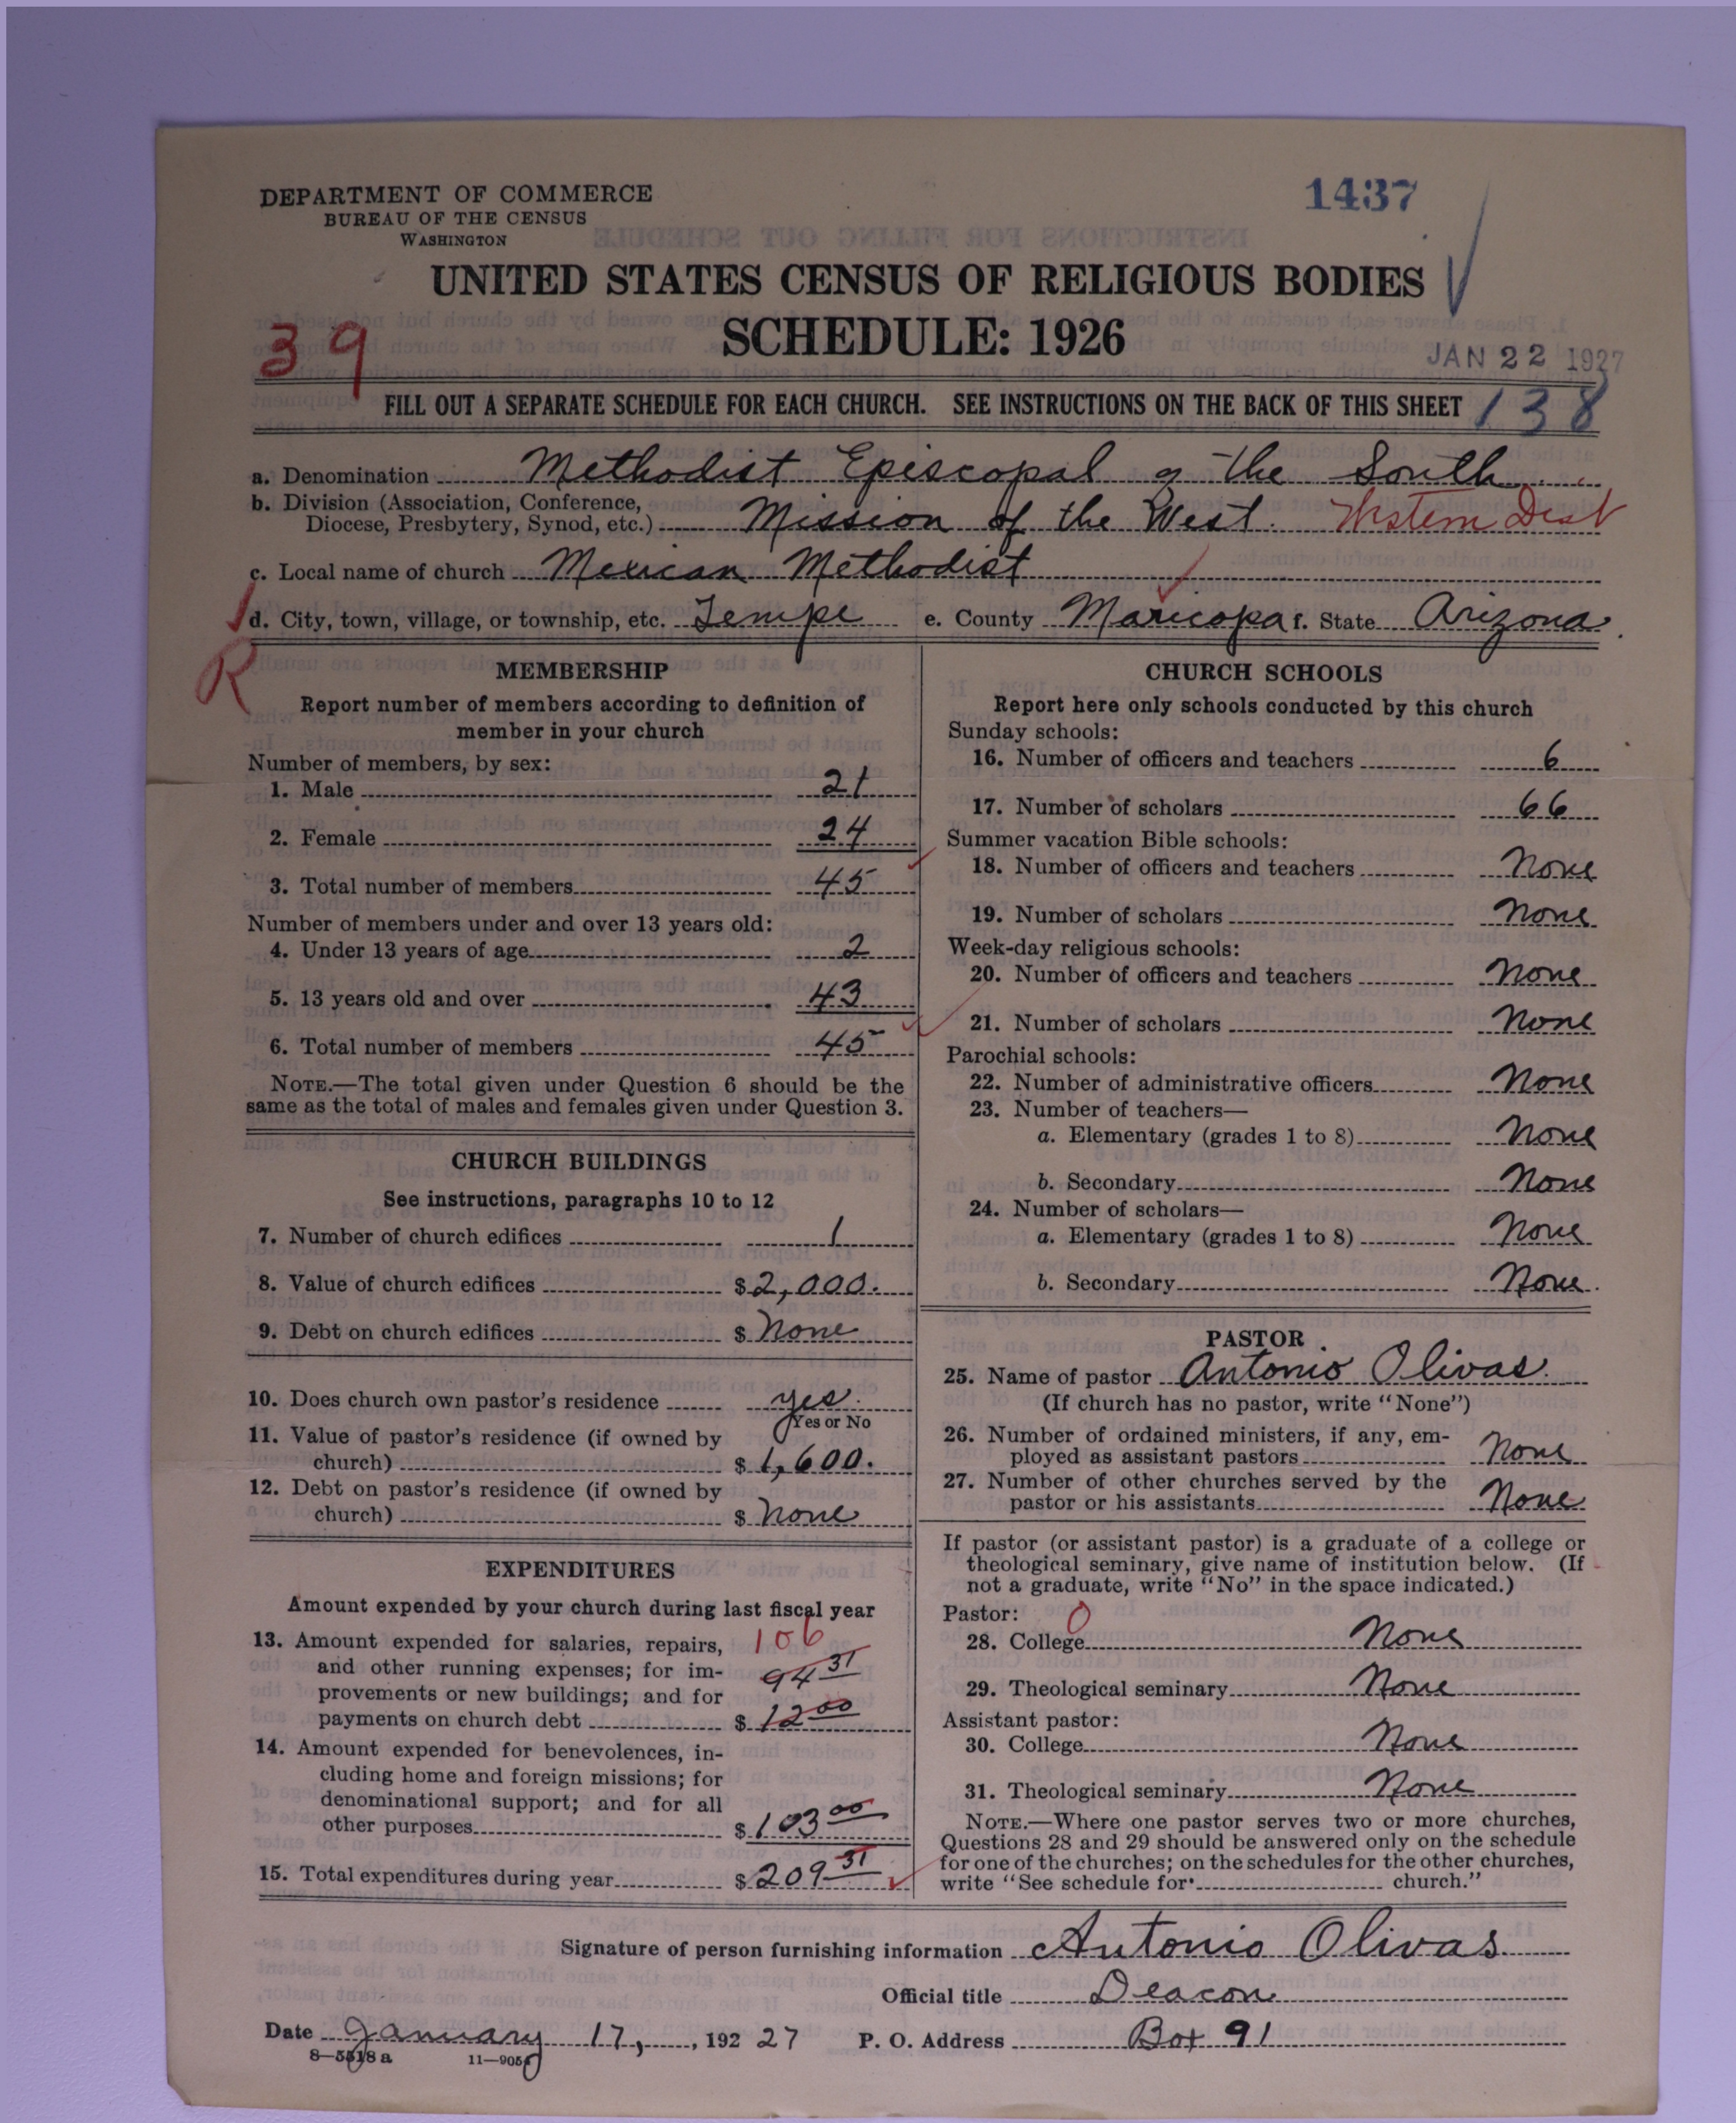 DEPARTMENT OF COMMERCE
BUREAU OF THE CENSUS
WASHINGTON
1437
UNITED STATES CENSUS OF RELIGIOUS BODIES
SCHEDULE: 1926
39
JAN 22 1927
FILL OUT A SEPARATE SCHEDULE FOR EACH CHURCH. SEE INSTRUCTIONS ON THE BACK OF THIS SHEET 138
a. Denomination Methodist Episcopal of the South
b. Division (Association, Conference,
Diocese, Presbytery, Synod, etc.) Mission of the West. Western Dist
c. Local name of church Mexican Methodist
d. City, town, village, or township, etc. Tempe e. County Maricopa f. State Arizona
R
MEMBERSHIP
Report number of members according to definition of
member in your church
Number of members, by sex:
1. Male 21
2. Female 24
3. Total number of members 45
Number of members under and over 13 years old:
4. Under 13 years of age 2
5. 13 years old and over 43
6. Total number of members 45
NOTE.—The total given under Question 6 should be the
same as the total of males and females given under Question 3.
CHURCH BUILDINGS
See instructions, paragraphs 10 to 12
7. Number of church edifices 1
8. Value of church edifices $2,000.
9. Debt on church edifices $ None
10. Does church own pastor's residence yes.
Yes or No
11. Value of pastor's residence (if owned by
church) $1,600.
12. Debt on pastor's residence (if owned by
church) $ None
EXPENDITURES
Amount expended by your church during last fiscal year
13. Amount expended for salaries, repairs, 106
and other running expenses; for im- 94 31
provements or new buildings; and for
payments on church debt $ 12 00
14. Amount expended for benevolences, in-
cluding home and foreign missions; for
denominational support; and for all
other purposes $103 00
15. Total expenditures during year $209 31
CHURCH SCHOOLS
Report here only schools conducted by this church
Sunday schools:
16. Number of officers and teachers 6
17. Number of scholars 66
Summer vacation Bible schools:
18. Number of officers and teachers None
19. Number of scholars None
Week-day religious schools:
20. Number of officers and teachers None
21. Number of scholars None
Parochial schools:
22. Number of administrative officers None
23. Number of teachers—
a. Elementary (grades 1 to 8) None
b. Secondary None
24. Number of scholars—
a. Elementary (grades 1 to 8) None
b. Secondary None.
PASTOR
25. Name of pastor Antonio Olivas.
(If church has no pastor, write "None")
26. Number of ordained ministers, if any, em-
ployed as assistant pastors None
27. Number of other churches served by the
pastor or his assistants None
If pastor (or assistant pastor) is a graduate of a college or
theological seminary, give name of institution below. (If
not a graduate, write "No" in the space indicated.)
Pastor: 0
28. College None
29. Theological seminary None
Assistant pastor:
30. College None
31. Theological seminary None
NOTE.—Where one pastor serves two or more churches,
Questions 28 and 29 should be answered only on the schedule
for one of the churches; on the schedules for the other churches,
write "See schedule for church."
Signature of person furnishing information Antonio Olivas
Official title Deacon
Date January 17, , 192 27 P. O. Address Box 91
8—5518 a 11—9051